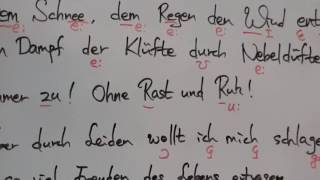 em Schnee, dem Regen den Wind ent
e: e: e: e: ɪ
n Dampf der Klüfte durch Nebeldüfte
e: ʊ e:
mmer zu! Ohne Rast und Ruh!
u:
er durch Leiden wollt ich mich schlage
ɔ ç ç
so viel Freuden des Lebens ertragen